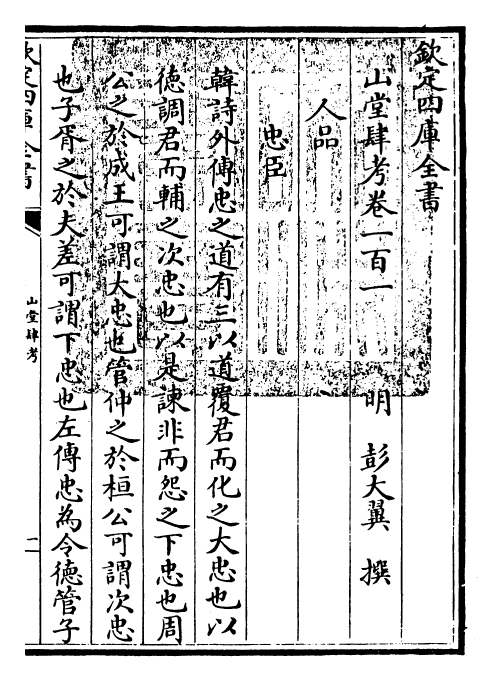 欽定四庫全書
山堂肆考卷一百一　明　彭大翼　撰
人品
忠臣
韓詩外傳忠之道有三以道覆君而化之大忠也以
德調君而輔之次忠也以是諫非而怨之下忠也周
公之於成王可謂大忠也管仲之於桓公可謂次忠
也子胥之於夫差可謂下忠也左傳忠為令德管子
欽定四庫全書
山堂肆考
一